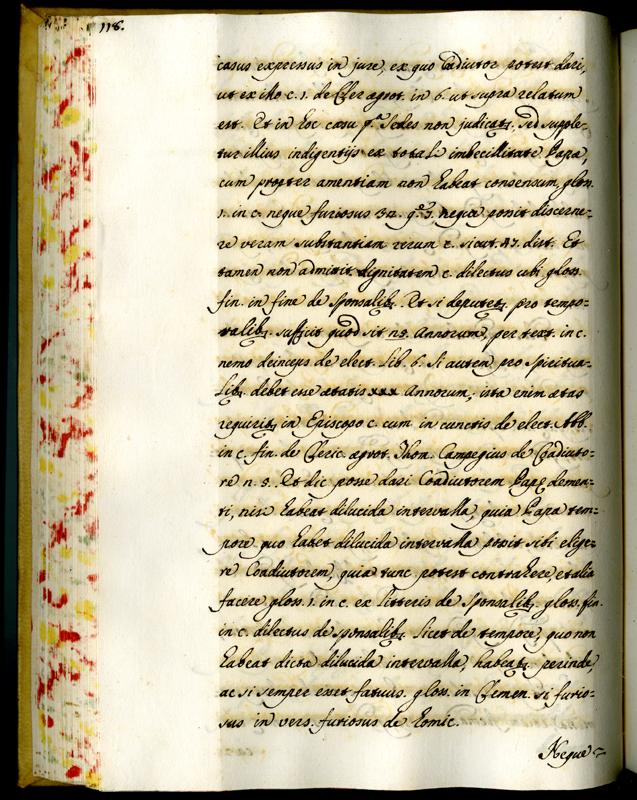 118.
casus expressus in jure, ex quo Coadiutor potest dari,
ut ex dicto c. 1. de Cler. ægrot. in 6. ut supra relatum
est. Et in hoc casu Sedes non judicatz. sed supple-
tur illius indigentijs ex totali imbecillitate Papa,
cum propter amentiam non habeat consensum, glos.
1. in c. neque furiosus 32. q. 7. neque ponit discerne-
re veram substantiam rerum c. sicut. 47. dist. Et
tamen non admittit dignitatem c. dilectus ubi glos.
fin. in fine de sponsalibz. Et si deputetz. pro tempo-
ralibz. sufficit quod sit 25. Annorum, per text. in c.
nemo deinceps de elect. lib. 6. Si autem pro spiritua-
libz. debet esse ætatis xxx Annorum, ista enim ætas
requiritz in Episcopo c. cum in cunctis de elect. Abb.
in c. fin. de Cleric. ægrot. Thom. Campegius de Coadiuto-
re n. 5. Et dic posse dari Coadiutorem Papę demen-
ti, nisi habeat dilucida intervalla, quia Papa tem-
pore quo habet dilucida intervalla potit sibi elige-
re Coadiutorem, quia tunc potest contrahere, et alia
facere glos. 1. in c. ex litteris de sponsalibz. glos. fin.
in c. dilectus de sponsalibz. licet de tempore, quo non
habeat dicta dilucida intervalla, habeatz. perinde,
ac si semper esset fatuus. glos. in Clemen. si furio-
sus in vers. furiosus de homic.
Neque